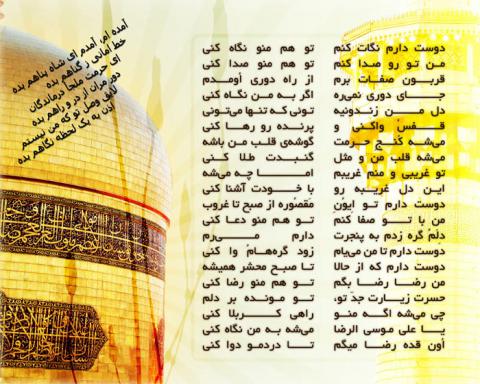 آمده ام، آمدم ای شاه پناهم بده
خط امانی ز گناهم بده
ای حرمت ملجأ درماندگان
دور مران از در و راهم بده
لایق وصل تو که من نیستم
اذن به یک لحظه نگاهم بده
دوست دارم نگات کنم تو هم منو نگاه کنی
من تو رو صدا کنم تو هم منو صدا کنی
قربون صفات برم از راه دوری اومدم
جای دوری نمی‌ره اگر به من نگاه کنی
دل من زندونیه تونی که تنها می‌تونی
قفس واکنی و پرنده رو رها کنی
می‌شه کنج حرمت گوشه‌ی قلب من باشه
می‌شه قلب من و مثل گنبدت طلا کنی
تو غریبی و منم غریبم اما چه می‌شه
این دل غریبه رو با خودت آشنا کنی
دوست دارم تو ایون مقصوره از صبح تا غروب
من با تو صفا کنم تو هم منو دعا کنی
دلم گره زدم به پنجرت دارم می‌رم
دوست دارم تا من می‌یام زود گره‌هام وا کنی
دوست دارم که از حالا تا صبح محشر همیشه
من رضا رضا بگم تو هم منو رضا کنی
حسرت زیارت جد تو، تو مونده بر دلم
چی می‌شه اگه منو راهی کربلا کنی
یا علی موسی الرضا می‌شه به من نگاه کنی
اون قده رضا میگم تا دردمو دوا کنی